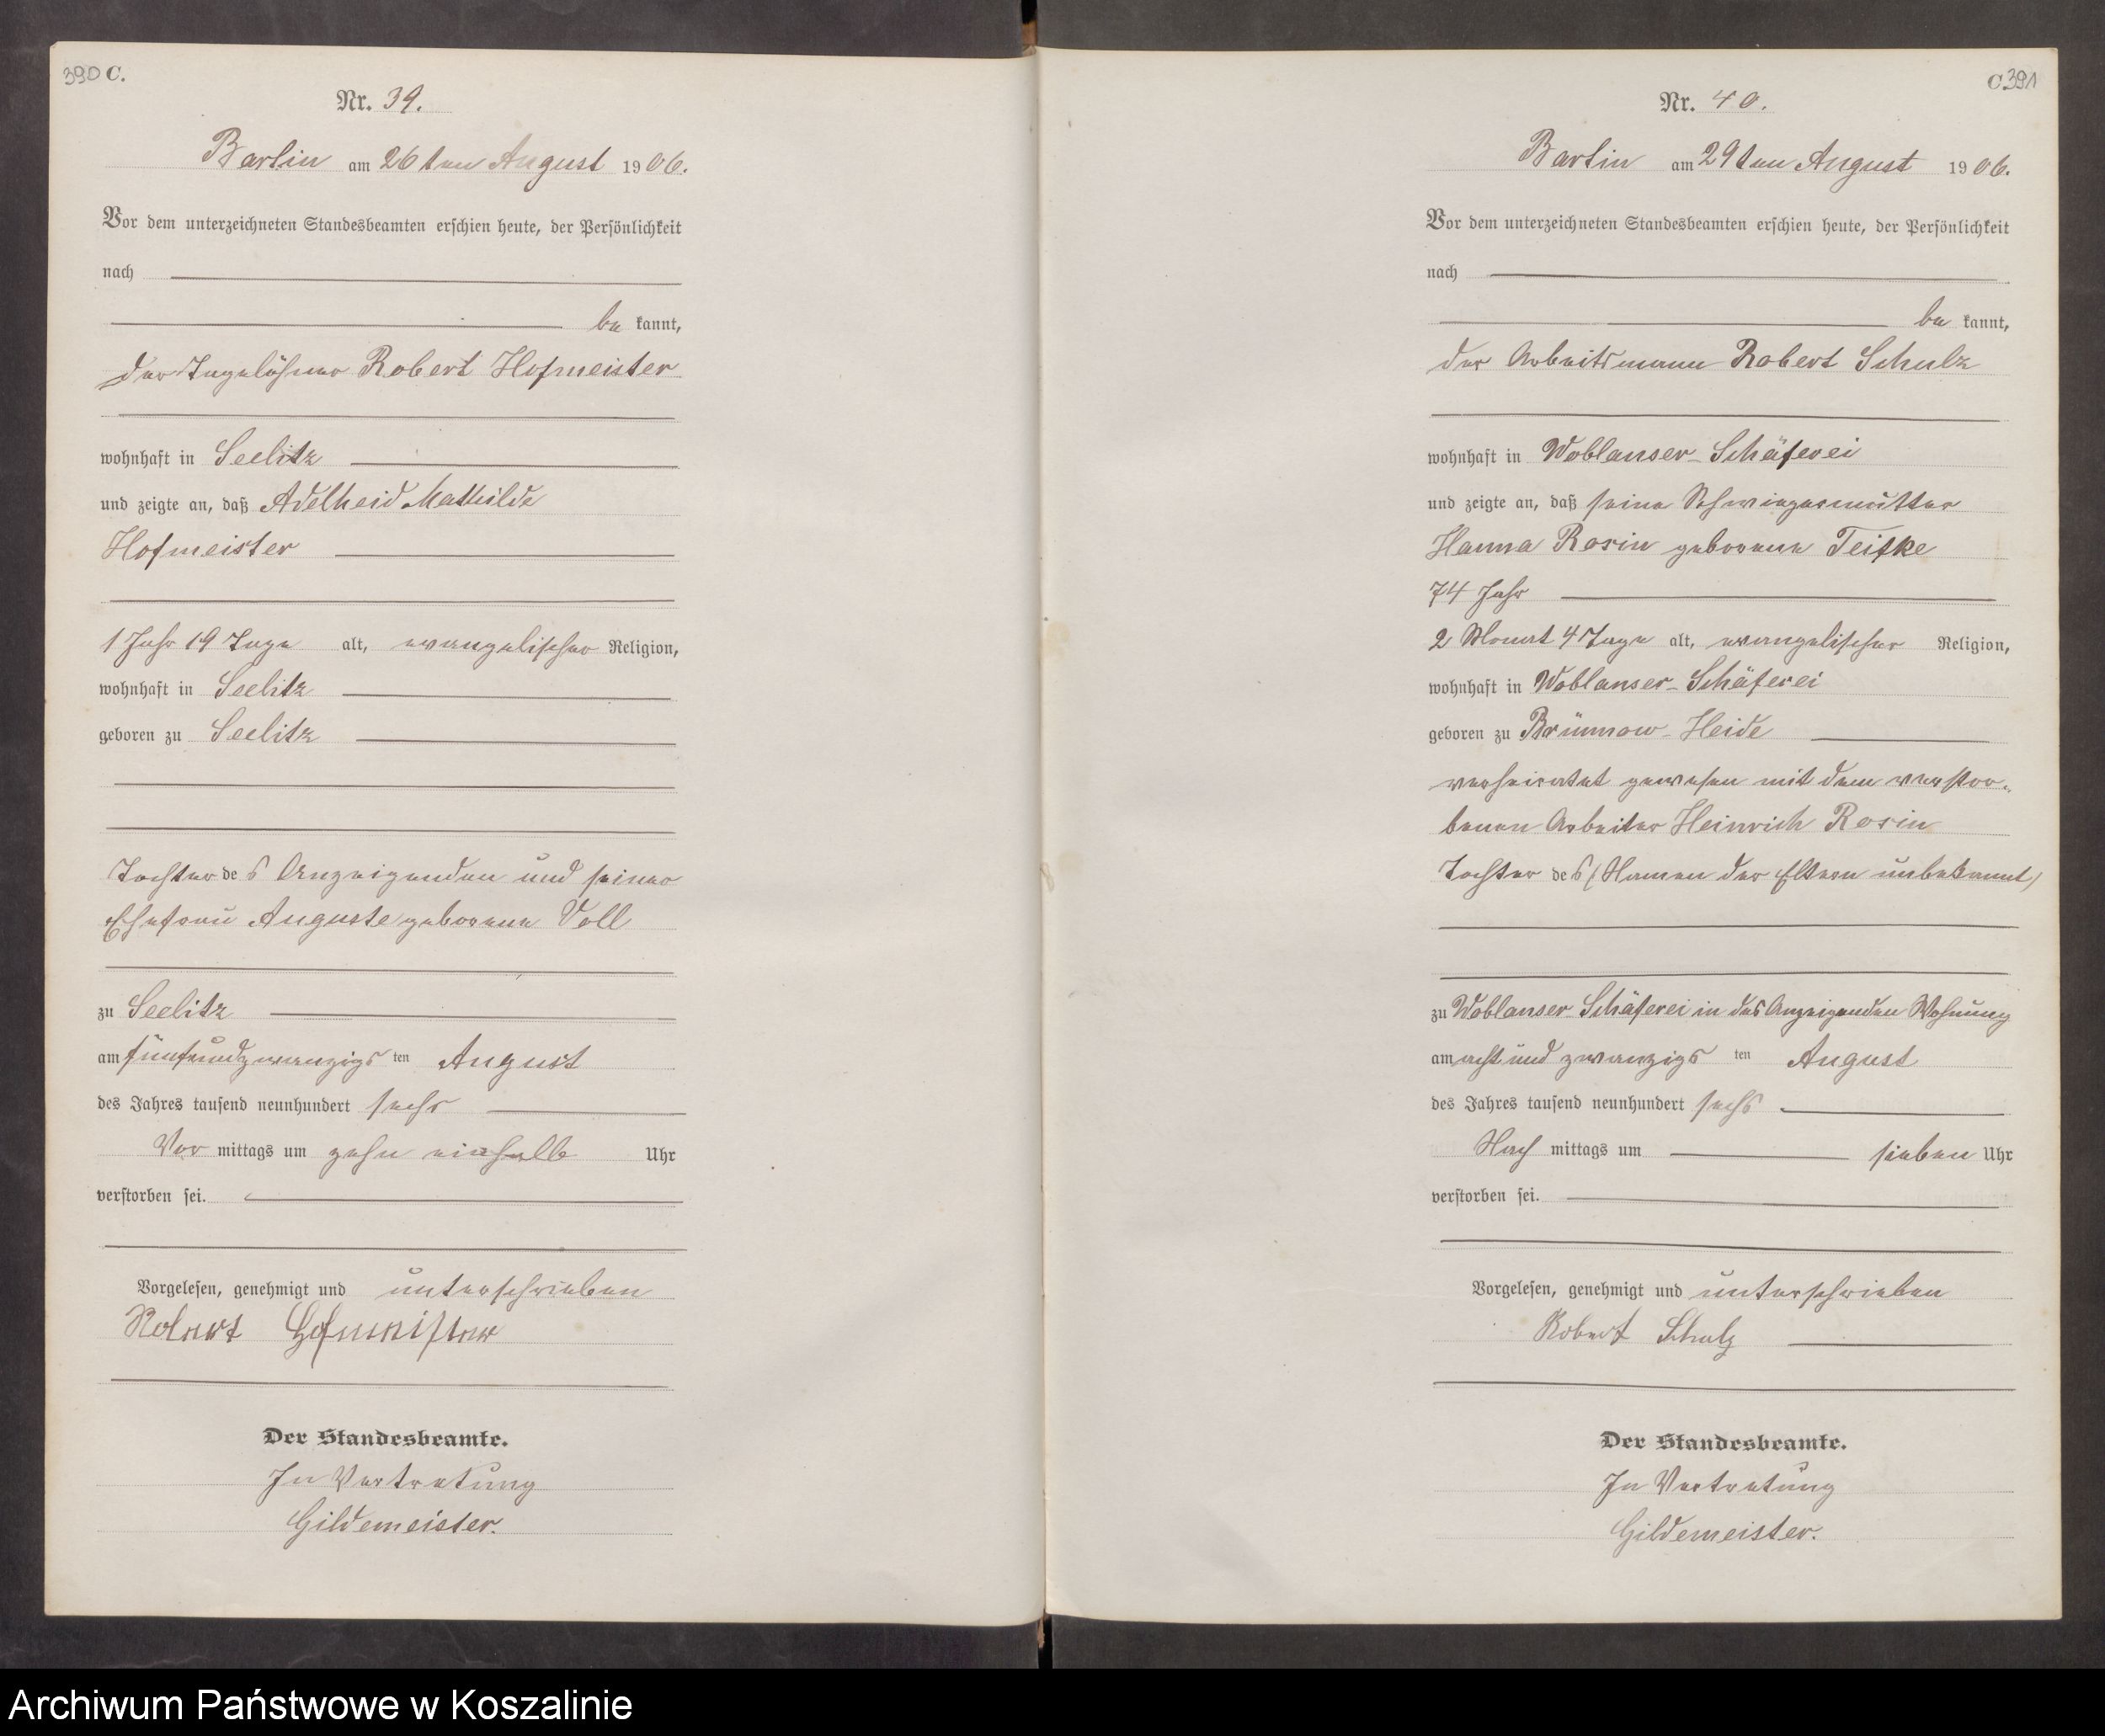 390 C.
Nr. 39.
Bartin am 26ten August 1906.
Vor dem unterzeichneten Standesbeamten erschien heute, der Persönlichkeit
nach
be kannt,
der Tagelöhner Robert Hofmeister
wohnhaft in Seelitz
und zeigte an, daß Adelheid Mathilde
Hofmeister
1 Jahr 19 Tage alt, evangelischer Religion,
wohnhaft in Seelitz
geboren zu Seelitz
Tochter des Anzeigenden und seiner
Ehefrau Auguste geborene Voll
zu Seelitz
am fünfundzwanzigsten August
des Jahres tausend neunhundert sechs
Vor mittags um zehn einhalb Uhr
verstorben sei.
Vorgelesen, genehmigt und unterschrieben
Robert Hofmeister
Der Standesbeamte.
In Vertretung
Gildemeister.
C. 391
Nr. 40.
Bartin am 29ten August 1906.
Vor dem unterzeichneten Standesbeamten erschien heute, der Persönlichkeit
nach
be kannt,
der Arbeitsmann Robert Schulz
wohnhaft in Woblanser-Schäferei
und zeigte an, daß seine Schwiegermutter
Hanna Rosin geborene Teifke
74 Jahr
2 Monat 4 Tage alt, evangelischer Religion,
wohnhaft in Woblanser-Schäferei
geboren zu Brünnow-Heide
verheiratet gewesen mit dem verstor-
benen Arbeiter Heinrich Rosin
Tochter des (Namen der Eltern unbekannt)
zu Woblanser-Schäferei in des Anzeigenden Wohnung
am acht und zwanzigsten August
des Jahres tausend neunhundert sechs
Nach mittags um sieben Uhr
verstorben sei.
Vorgelesen, genehmigt und unterschrieben
Robert Schulz
Der Standesbeamte.
In Vertretung
Gildemeister.
Archiwum Państwowe w Koszalinie